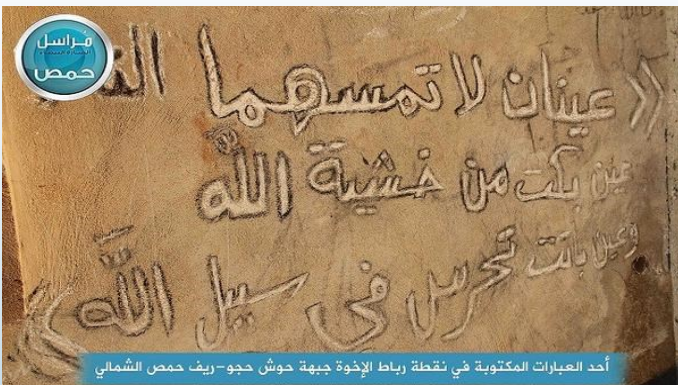 مراسل
حمص
« عينان لا تمسهما النار
عين بكت من خشية الله
وعين باتت تحرس في سبيل الله »
أحد العبارات المكتوبة في نقطة رباط الإخوة جبهة حوش حجو-ريف حمص الشمالي